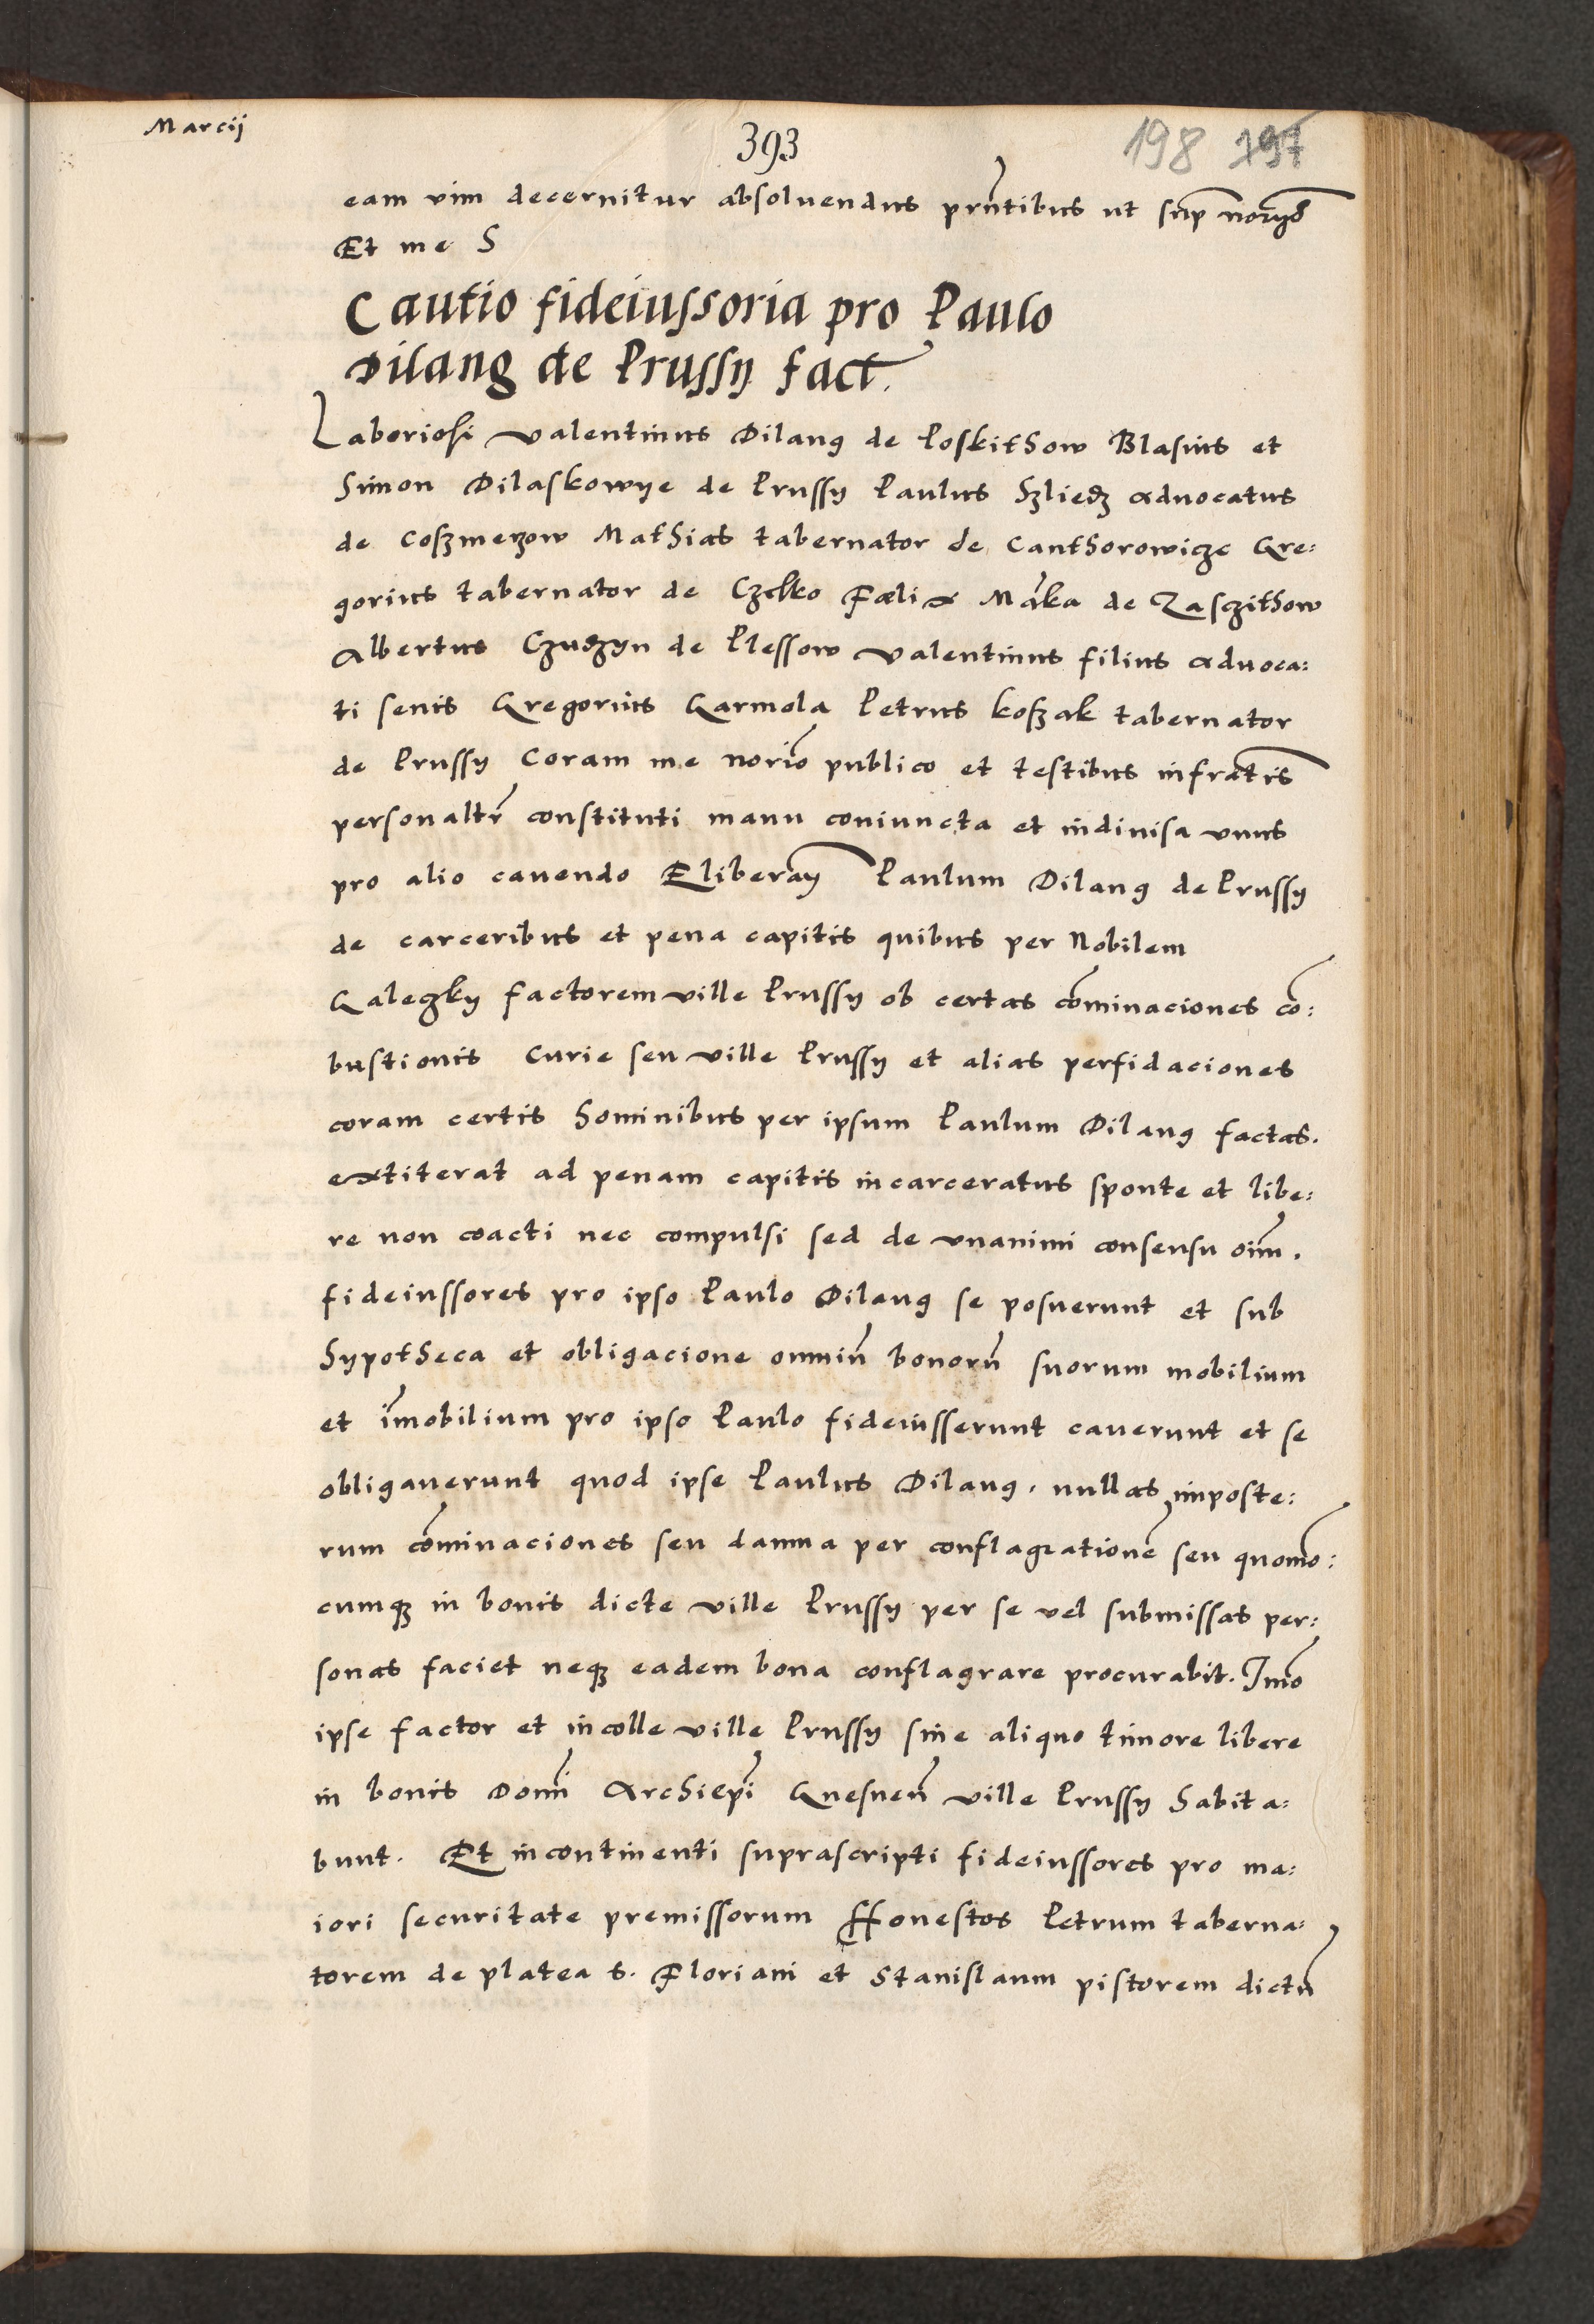 Marcij
393
198 197
eam vim decernitur absoluendus prñtibus ut sup
Et me S
Cautio fideiussoria pro Paulo
Dilang de Prussy fact.
Laboriosi Valentinus Dilang de Poskithow Blasius et
Simon Dilaskowye de Prussy Paulus Szliedz advocatus
de Coszmerzow Mathias tabernator de Canthorowicze Gre:
gorius tabernator de Czelko Fælix Marka de Zasczithow
Albertus Czudzyn de Plessow Valentinus filius advoca:
ti senis Gregorius Garmola Petrus koszak tabernator
de Prussy Coram me norio publico et testibus infratis
personaltr constituti manu coniuncta et indiuisa vnus
pro alio cauendo Eliberay Paulum Dilang de Prussy
de carceribus et pena capitis quibus per Nobilem
Galeczky factorem ville Prussy ob certas cõminaciones cõ:
bustionis Curie seu ville Prussy et alias perfidaciones
coram certis hominibus per ipsum Paulum Dilang factas.
extiterat ad penam capitis incarceratus sponte et libe:
re non coacti nec compulsi sed de vnanimi consensu oim̃.
fideiussores pro ipso Paulo Dilang se posuerunt et sub
hypotheca et obligacione omniũ bonorũ suorum mobilium
et im̃obilium pro ipso Paulo fideiusserunt cauerunt et se
obligauerunt quod ipse Paulus Dilang. nullas imposte:
rum cõminaciones seu damna per conflagrationẽ seu quomõ:
cumqz in bonis dicte ville Prussy per se vel submissas per:
sonas faciet neqz eadem bona conflagrare procurabit. Imõ
ipse factor et incolle ville Prussy sine aliquo timore libere
in bonis Domĩ Archiepĩ Gnesneñ ville Prussy habita:
bunt. Et incontinenti suprascripti fideiussores pro ma:
iori securitate premissorum Honestos Petrum taberna:
torem de platea s. Floriani et Stanislaum pistorem dictũ